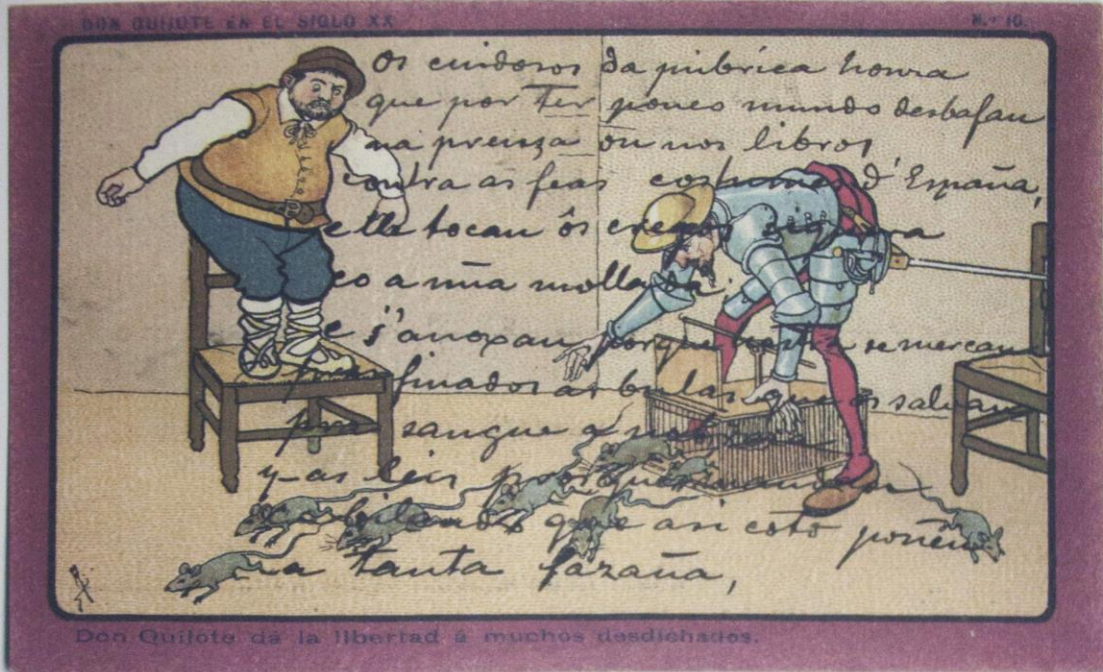 DON QUIJOTE EN EL SIGLO XX
N.º 10.
Os cuidosos da pubrica honra
que por ter pouco mundo desbafan
na prensa ou nos libros
contra as feas costumes d'España,
e lle tocan ôs
co a nũa mollada
e s'anoxan porque se mercan
finados as bulas que os salvan
sangue
y-as leis
que asi esto poñen
a tanta fazaña,
Don Quijote dá la libertad á muchos desdichados.